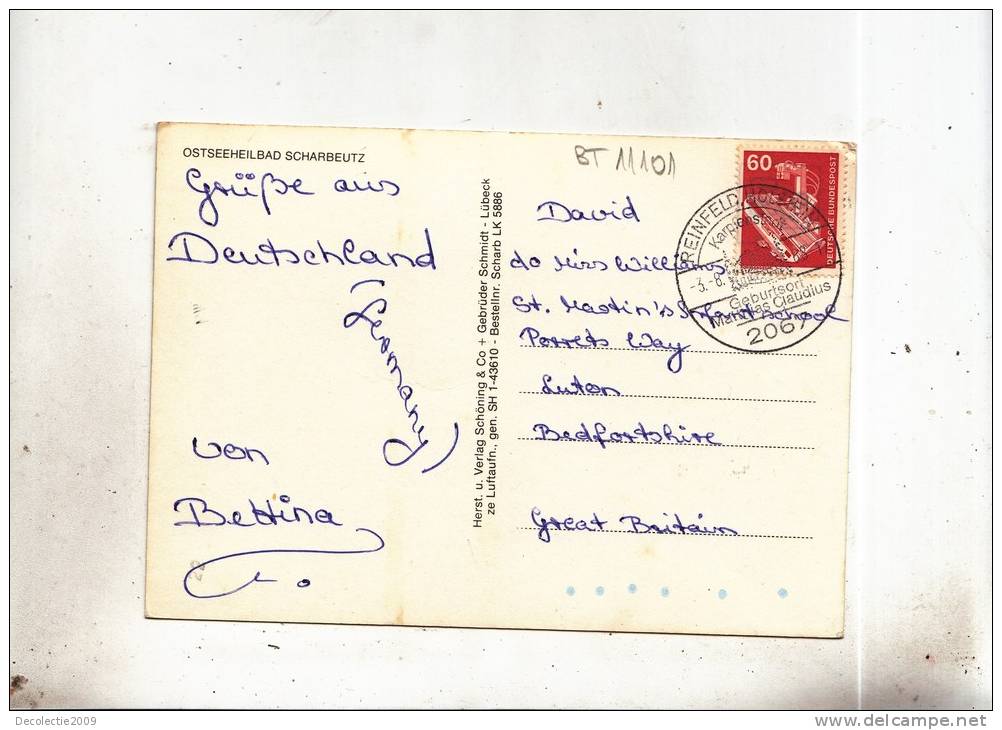 OSTSEEHEILBAD SCHARBEUTZ
Grüße aus
Deutschland
(Germany)
von
Bettina
Herst. u. Verlag Schöning & Co + Gebrüder Schmidt - Lübeck
ze Luftaufn., gen. SH 1-43610 - Bestellnr. Scharb LK 5886
BT 11101
60
DEUTSCHE BUNDESPOST
REINFELD
Karpfenstadt
-3.-8.
Geburtsort
Matthias Claudius
2067
David
do Mirs Williams
St. Martin's Infant school
Porrets Way
Luton
Bedfortshire
Great Britain
Decolectie2009
www.delcampe.net